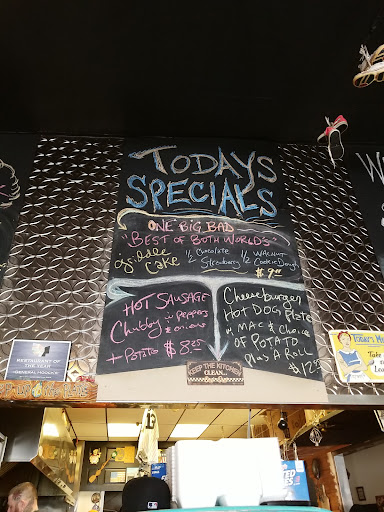 TODAYS
SPECIALS
ONE BIG BAD
"BEST OF BOTH WORLDS"
griddle
cake
1/2 Chocolate
Strawberry
1/2 WALNUT
Cookie Dough
HOT SAUSAGE
Chubby w/ Peppers
& onions
+ POTATO $8.25
Cheeseburger
HOT DOG Plate
w MAC & Choice
OF POTATO
Plus A Roll
KEEP THE KITCHEN
CLEAN
RESTAURANT OF
THE YEAR
Today's
Take